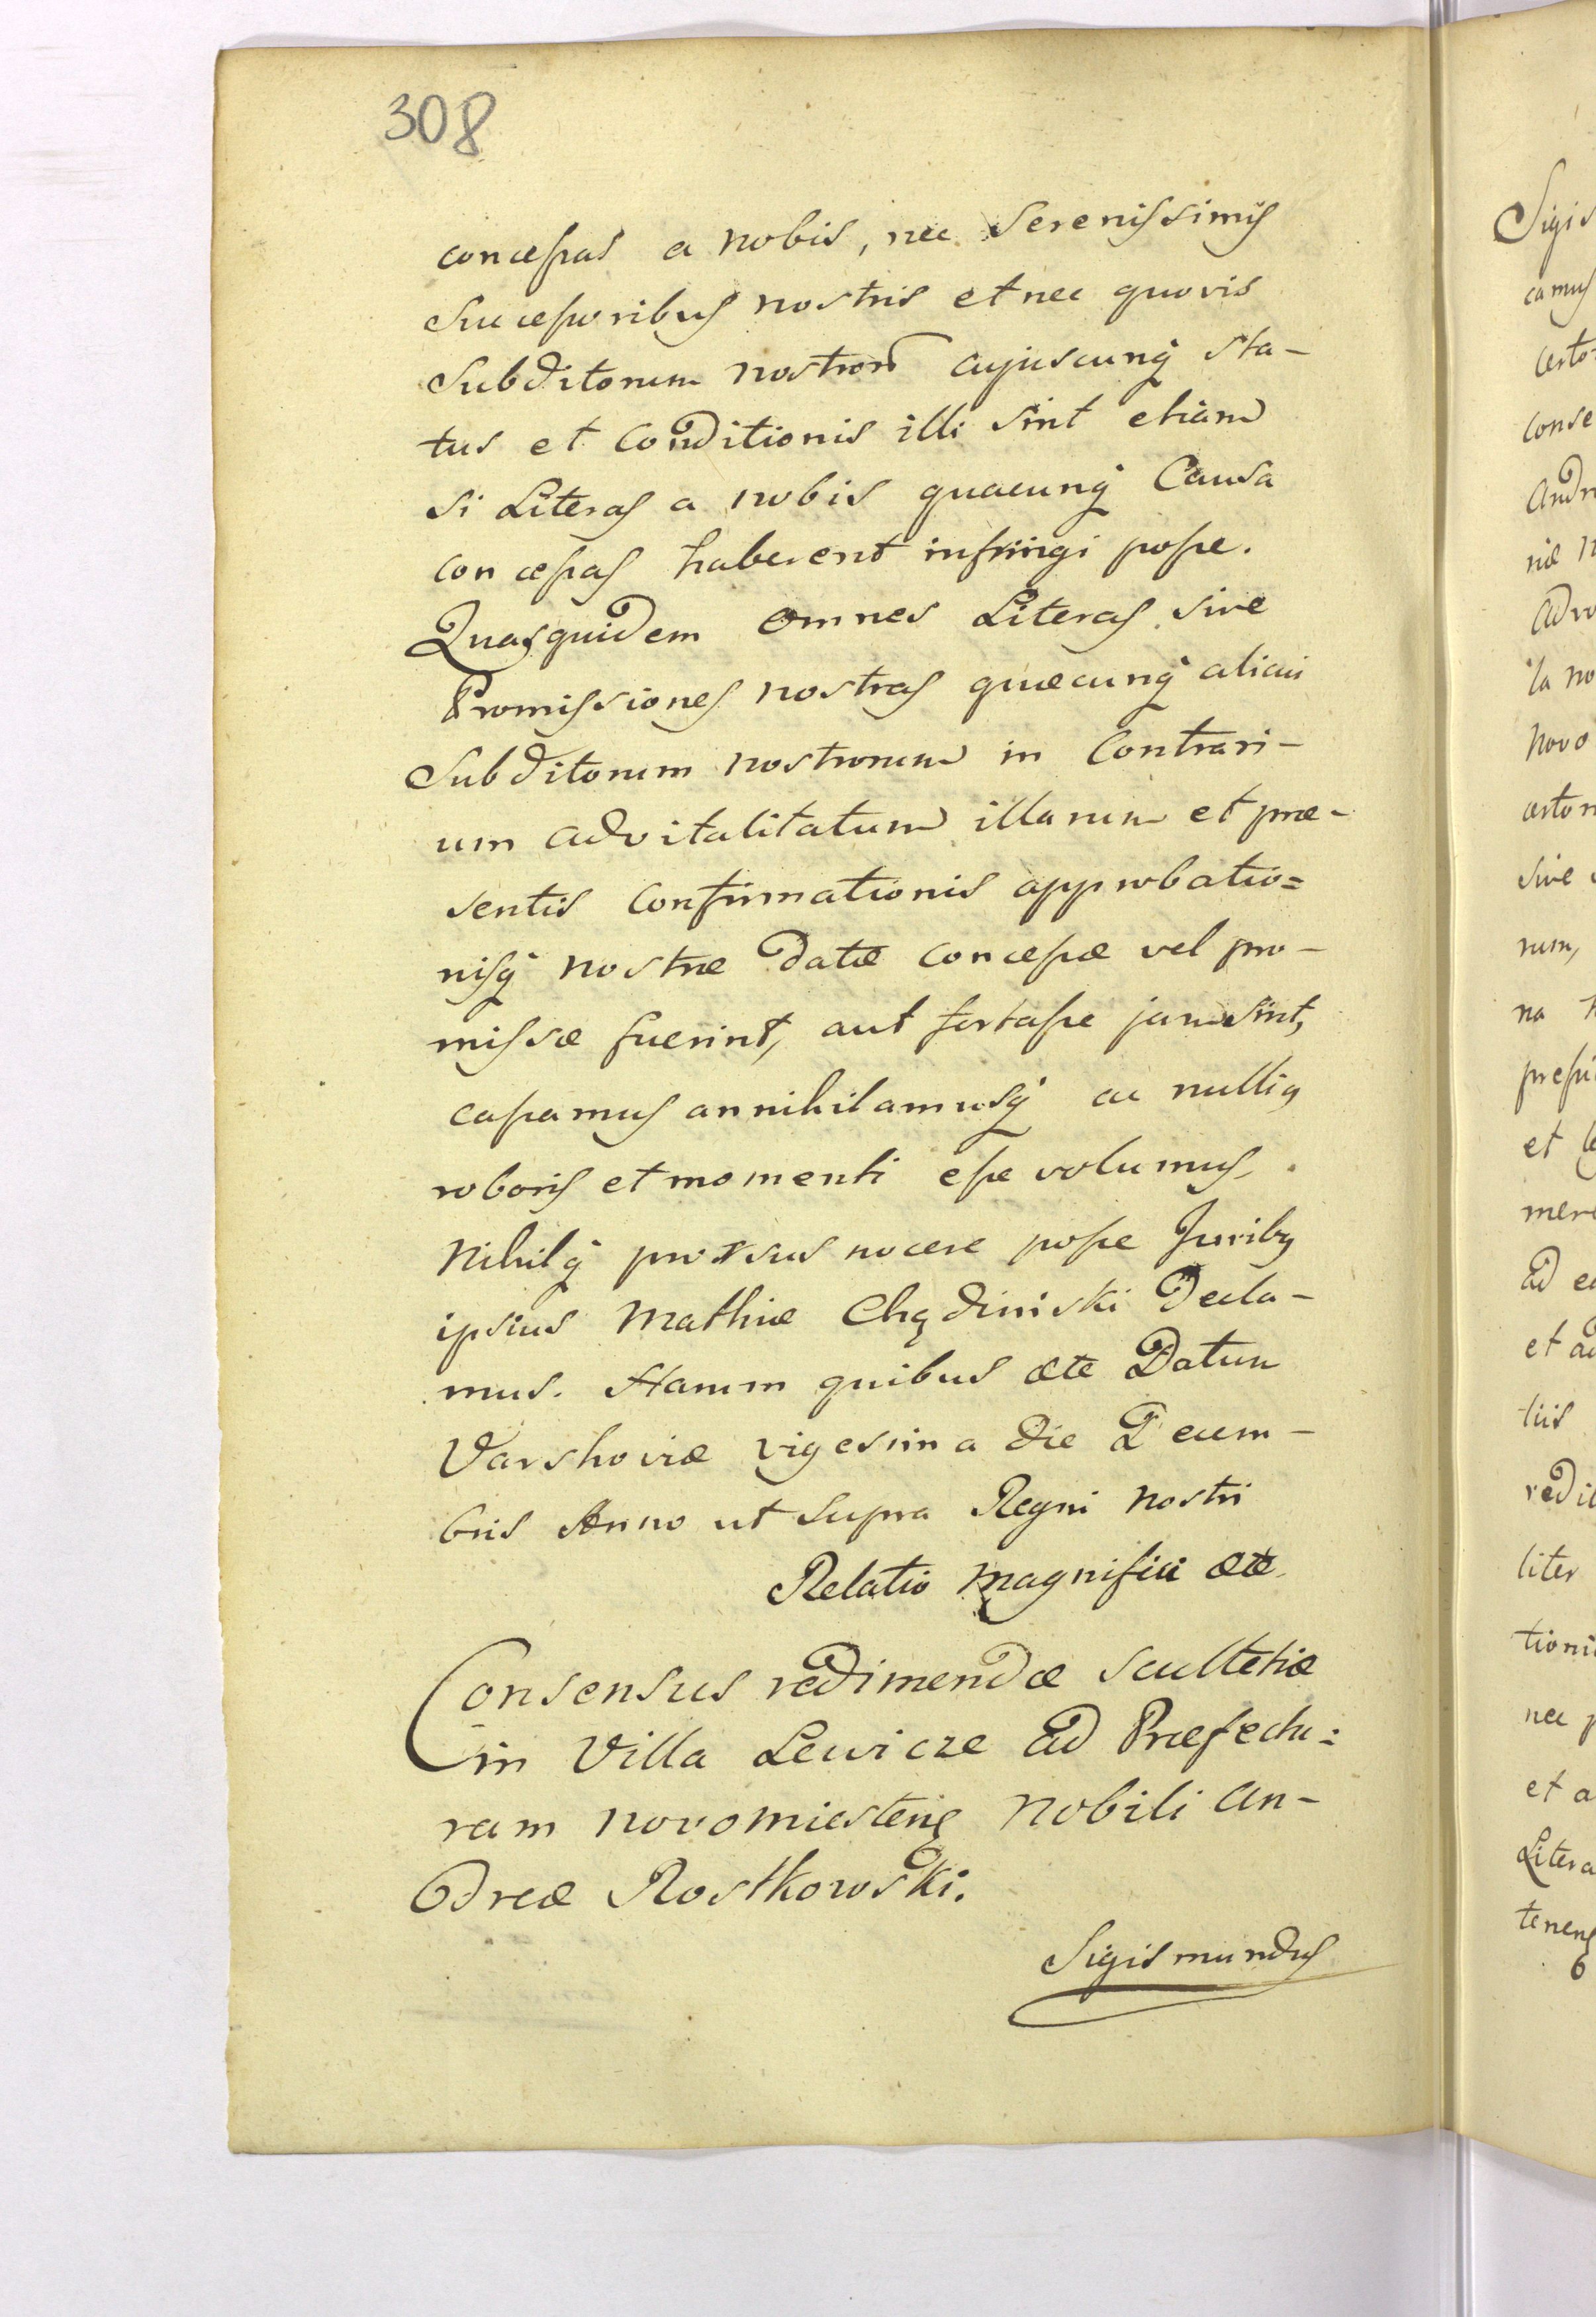 308
concessas a nobis, nec Serenissimis
Successoribus nostris et nec quovis
Subditorum nostror̃ cujuscunq́ sta-
tus et Conditionis illi sint etiam
si Literas a nobis quacunq́ Causa
concessas haberent infringi posse.
Quasquidem omnes Literas sive
Promissiones nostras quæcunq́ alicui
Subditorum nostrorum in Contrari-
um advitalitatum illarum et præ-
sentis Confirmationis approbatio=
nisq́ nostræ datæ concessæ vel pro-
missæ fuerint, aut fortasse jam sint,
cassamus annihilamusq́ ac nullius
roboris et momenti esse volumus.
Nihilq́ prorsus nocere posse Juribus
ipsius Mathiæ Chądzinski Decla-
mus. Harum quibus etc Datum
Varshoviæ vigesima die Decem-
bris Anno ut supra Regni Nostri
Relatio Magnifici etc
Consensus redimendæ scultetiæ
in Villa Lewicze ad Præfectu=
ram novomiesteñs Nobili An-
dreæ Rostkowski.
Sigismundus
Sigis
camus
certo
conse
Andr
niæ n
adv
la no
novo
certor
sive
rum,
na
et
mere
ad
et
tiis
redi
liter
tioni
nec p
et a
Litera